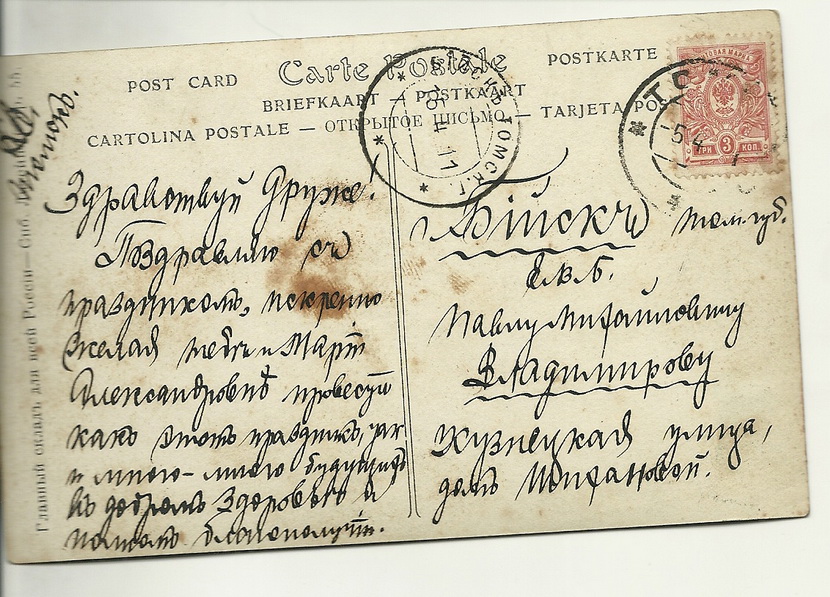 POST CARD Carte Postale POSTKARTE
BRIEFKAART — POSTKAART
CARTOLINA POSTALE — ОТКРЫТОЕ ПИСЬМО — TARJETA PO
Главный складъ для всей Россіи — Спб.
55.
Томскъ.
Здравствуй Друже!
Поздравляю съ
праздникомъ, искренно
желая тебѣ и Марѣ
Александровнѣ провести
какъ этотъ праздникъ, такъ
и много-много будущихъ
въ добромъ здоровьѣ и
полномъ благополучіи.
г. Бійскъ Том. губ.
Е. В. Б.
Павлу Михайловичу
Владимирову
Кузнецкая улица,
домъ
БІЙСКЪ ТОМСК. Г.
9 4 11
ТОМСКЪ
-5 4
ПОЧТОВАЯ МАРКА
ТРИ 3 КОП.